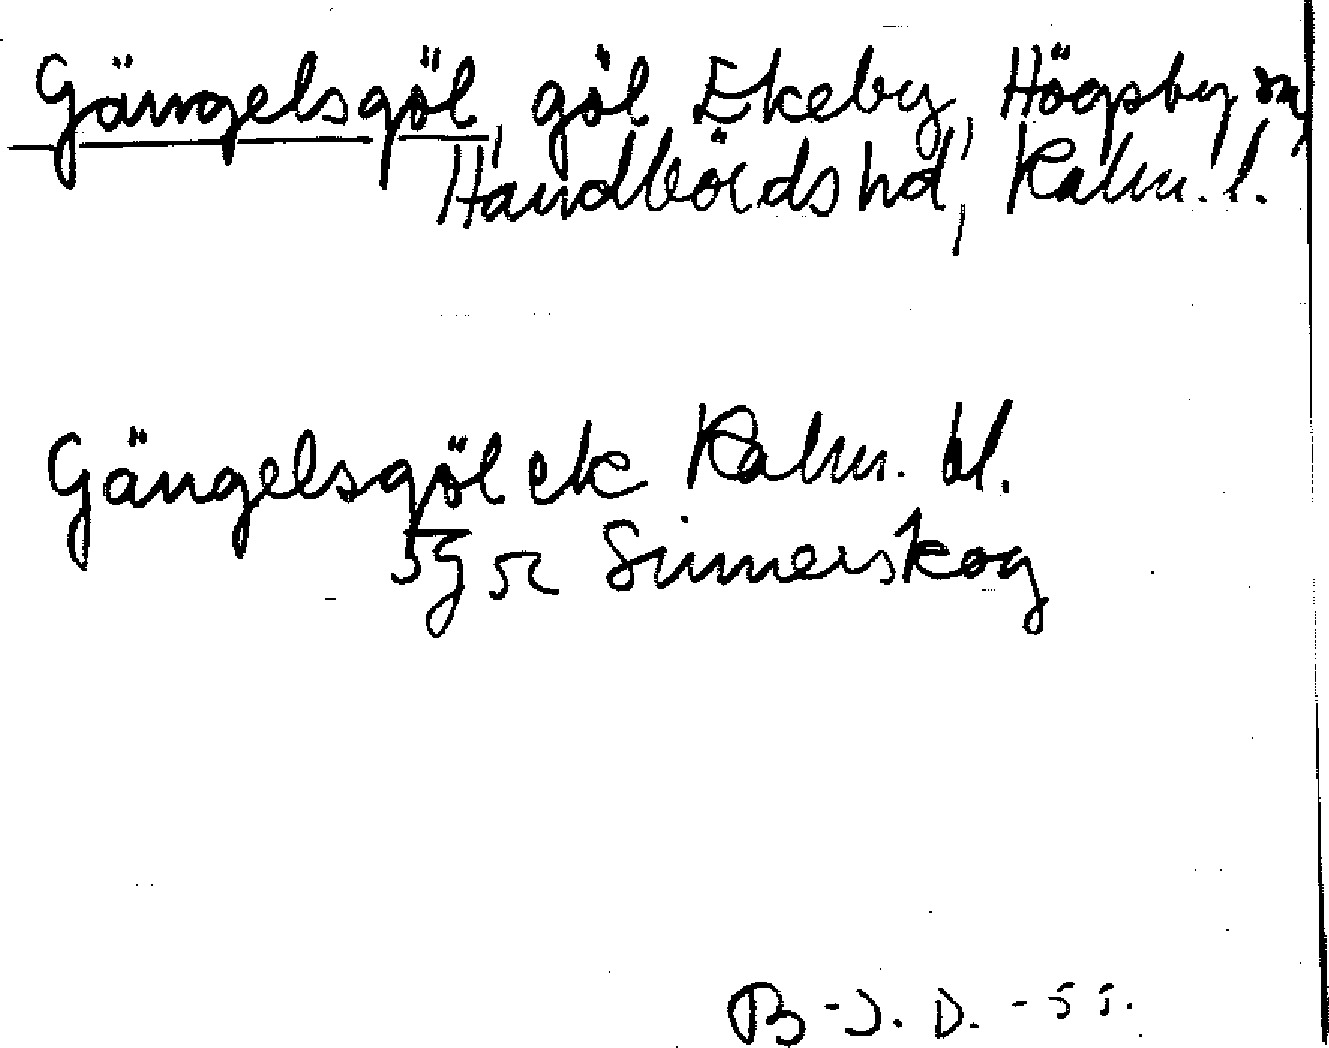 Gängelsgöl, göl Ekeby, Högsby sn,
Handbörds hd, Kalm. l.
Gängelsgöl ek Kalm. bl.
5g 52 Simmerskog
B-J. D. -55.